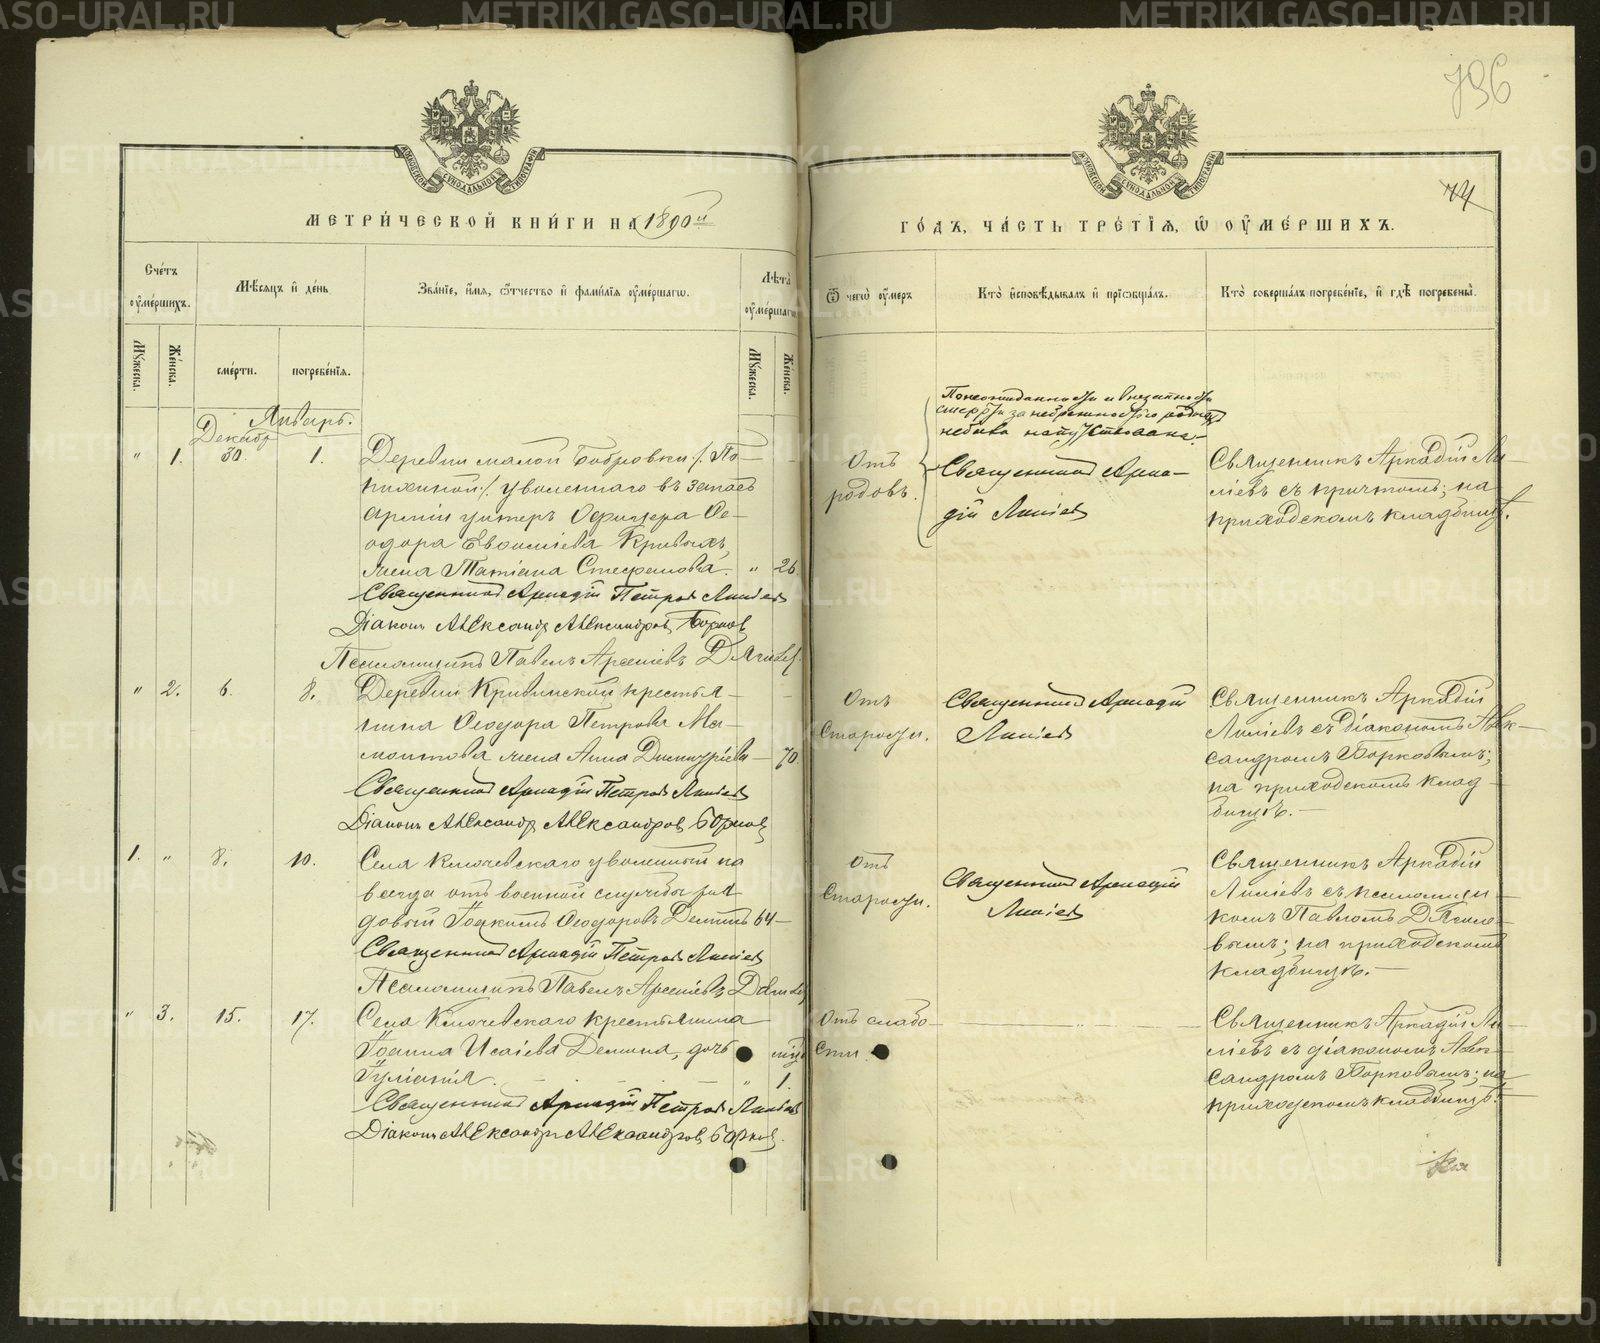 796
74
МЕТРИ́ЧЕСКОЙ КНИ́ГИ НА 1890й
ГО́ДЪ, ЧА́СТЬ ТРЕ́ТІЯ, Ѡ ОУМЕ́РШИХЪ.
Сче́тъ оуме́ршихъ.
Мѣ́сяцъ и де́нь
Зва́ніе, и́мя, ѻ́тчество и фами́лія оуме́ршагѡ.
Лѣ́та оуме́ршагѡ
Ѿ чегѡ̀ оу́меръ
Кто̀ исповѣ́дывалъ и прїѡбща́лъ.
Кто̀ соверша́лъ погребе́ніе, и гдѣ̀ погребены̀.
Му́жеска.
Же́нска.
сме́рти.
погребе́нія.
Му́жеска.
Же́нска.
Январь.
Декабр
" 1. 30. 1.
Деревни малой Бобровки /. По-
нихиной /. уволеннаго въ запасъ
арміи унтеръ Офицера Ѳе-
одора Евѳиміева Кривыхъ,
жена Татіана Стефанова. " 26
Священникъ Аркадій Петровъ Линіевъ
Діаконъ Александръ Александровъ Борковъ
Псаломщикъ Павелъ Арсеніевъ
Отъ
родовъ.
По неожиданности и внезапности
смерти за небрежностью родныхъ
небыла напутствована.-
Священникъ Арка-
дій Линіевъ
Священникъ Аркадій Ли-
ніевъ съ причтомъ; на
приходскомъ кладбищѣ.
" 2. 6. 8.
Деревни Кривинской крестья-
нина Ѳеодора Петрова Ма-
монтова, жена Анна Димитріева 70.
Священникъ Аркадій Петровъ Линіевъ
Діаконъ Александръ Александровъ Борковъ
Отъ
старости.
Священникъ Аркадій
Линіевъ
Священникъ Аркадій
Линіевъ съ діакономъ Алек-
сандромъ Борковымъ;
на приходскомъ клад-
бищѣ. -
1. " 8. 10.
Села Ключевскаго уволенный на
всегда отъ военной службы ря-
довый Іоакимъ Ѳеодоровъ Деминъ 64-
Священникъ Аркадій Петровъ Линіевъ
Псаломщикъ Павелъ Арсеніевъ
Отъ
старости.
Священникъ Аркадій
Линіевъ
Священникъ Аркадій
Линіевъ съ псаломщи-
комъ Павломъ Дягиле-
вымъ; на приходскомъ
кладбищѣ. -
" 3. 15. 17.
Села Ключевскаго крестьянина
Іоанна Исаіева Демина, дочь
Іуліанія. " 1.
Священникъ Аркадій Петровъ Линіевъ
Діаконъ Александръ Александровъ Борковъ.
Отъ слабо-
сти.
Священникъ Аркадій Ли-
ніевъ съ діакономъ Алек-
сандромъ Борковымъ; на
приходскомъ кладбищѣ.
METRIKI.GASO-URAL.RU